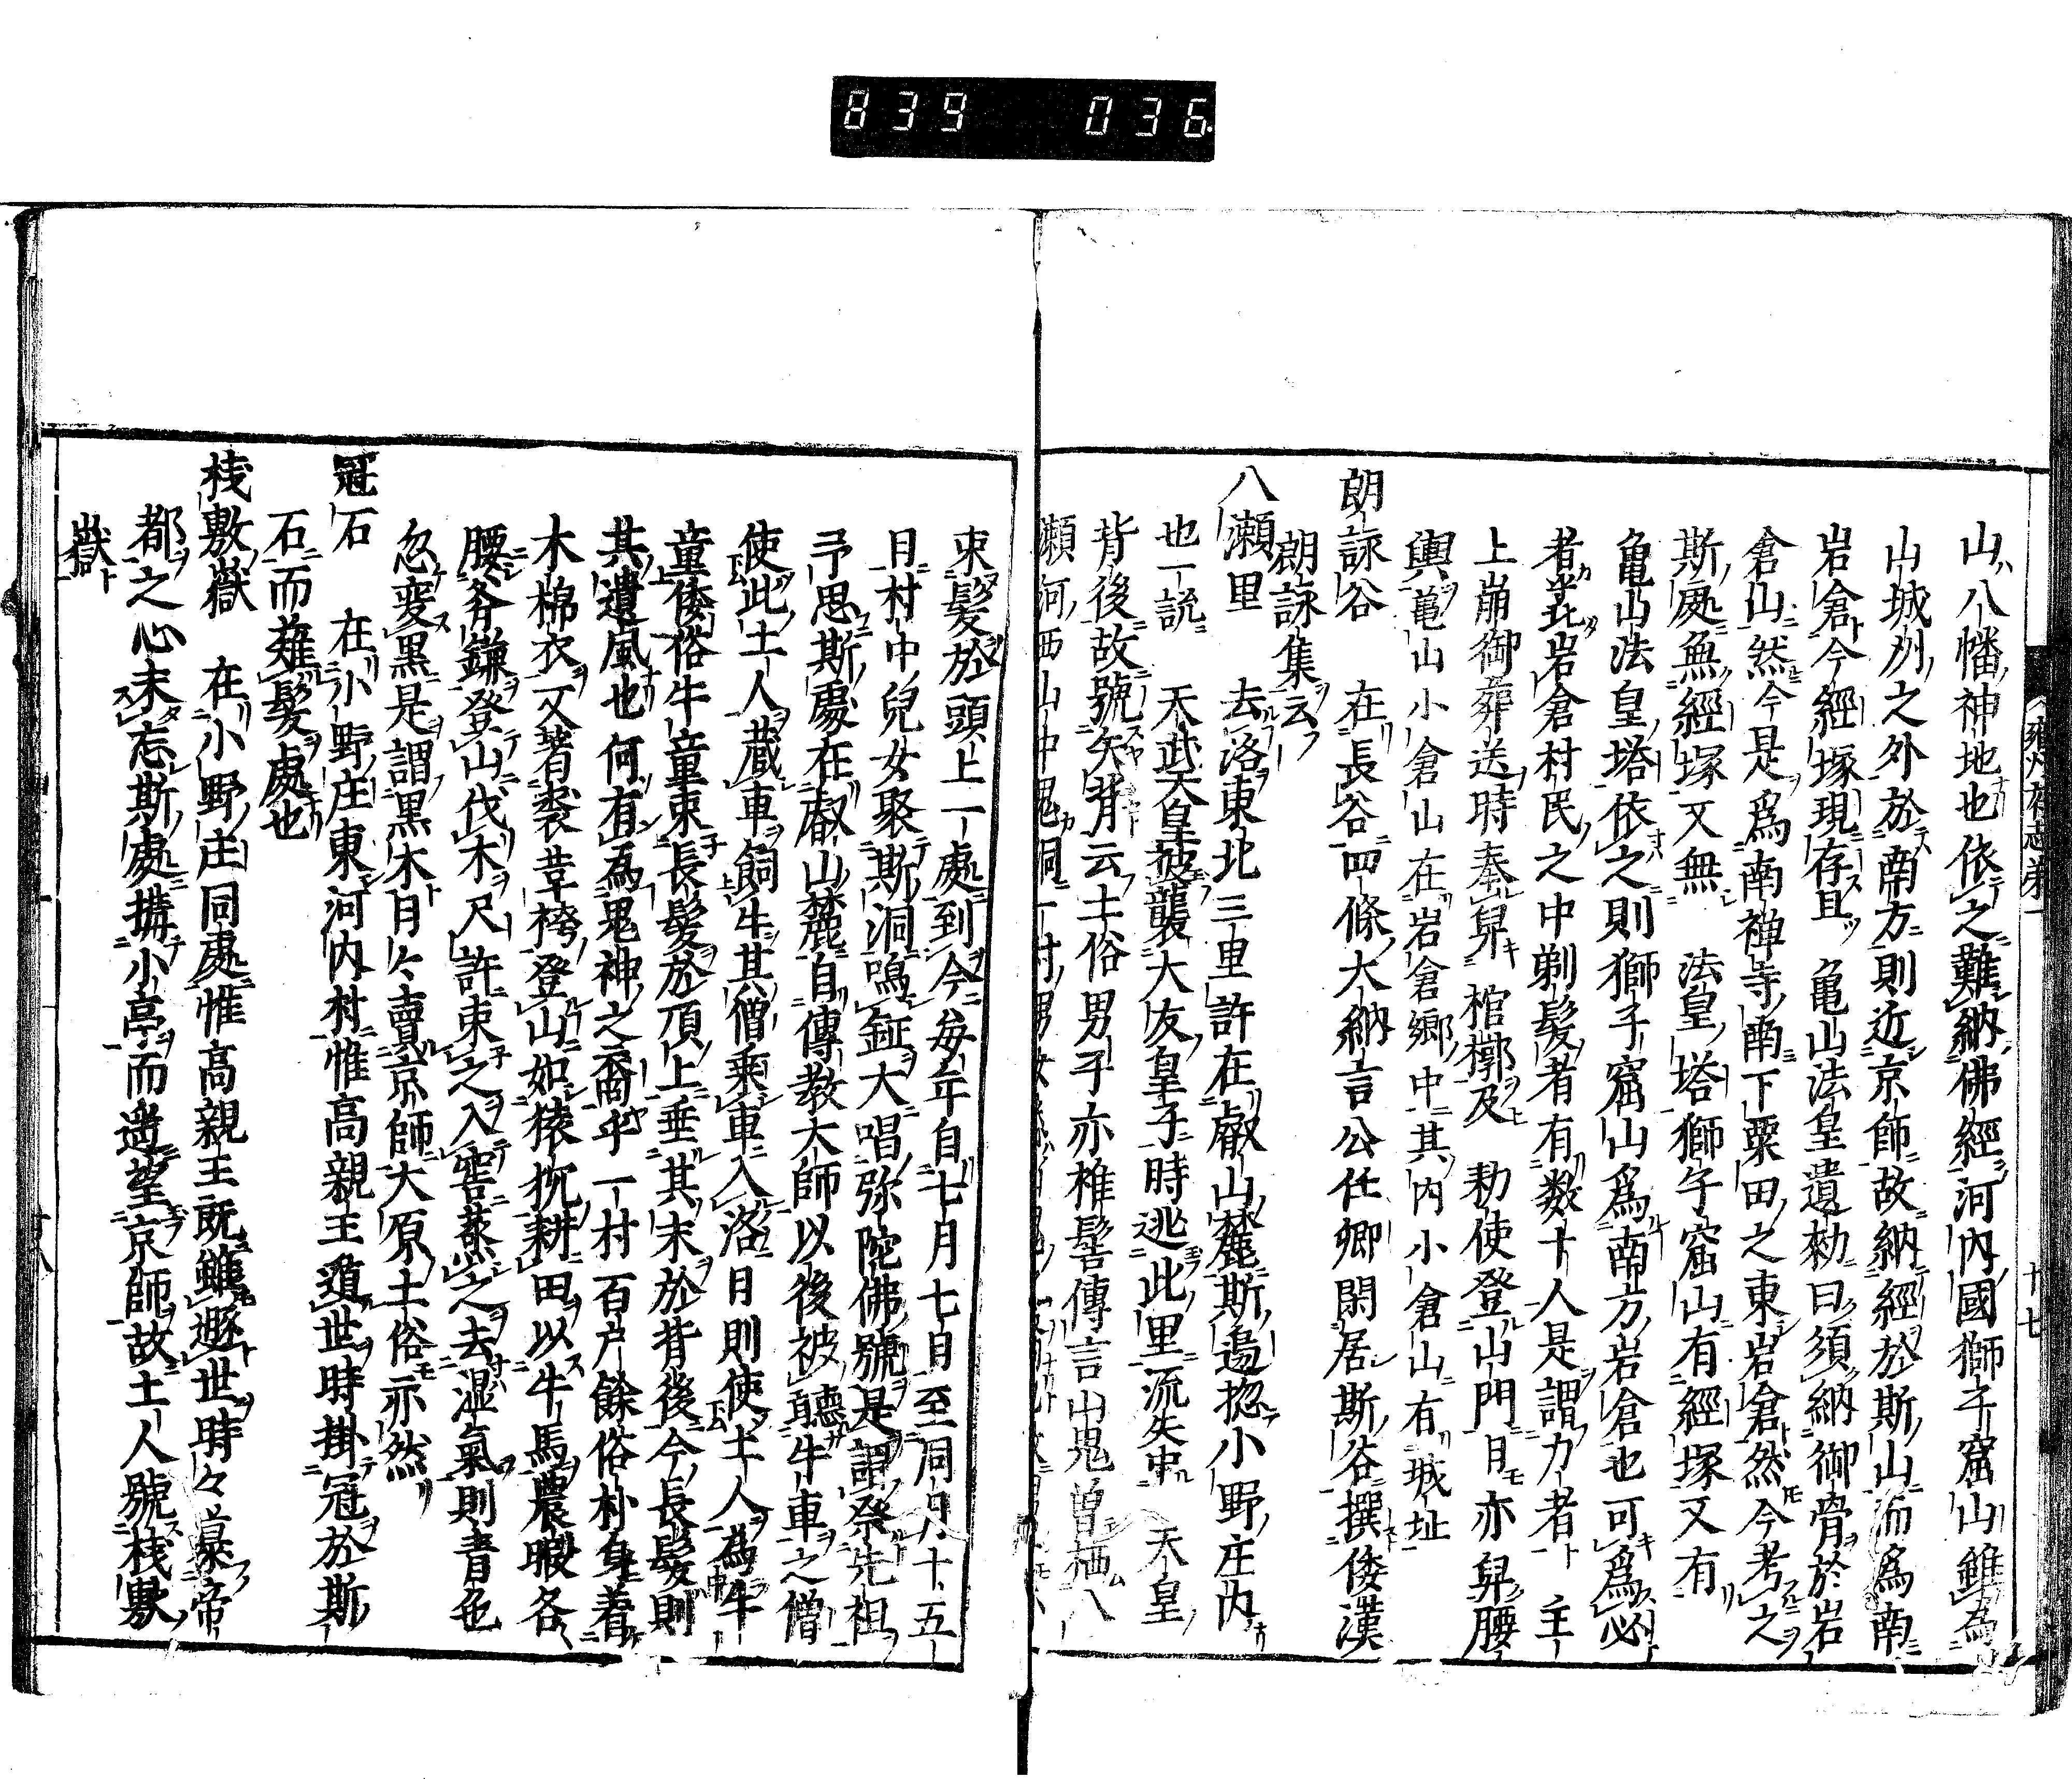 839 036
雍州府志巻一
十七
山八幡神地也依之難納佛經河內國獅子窟山雖為
山城州之外於南方則近京師故納經於斯山而為南
岩倉今經塚現存且 亀山法皇遺勅曰須納御骨於岩
倉山然今是為南禅寺南下粟田之東岩倉然今考之
斯處無經塚又無 法皇塔獅子窟山有經塚又有
亀山法皇塔依之則獅子窟山為南方岩倉也可為必
者北岩倉村民之中剃髪者有数十人是謂力者 主
上崩御葬送時奉舁 棺槨及 勅使登山門日亦舁腰
輿亀山小倉山在岩倉郷中其內小倉山有城址
朗詠谷 在長谷四條大納言公任卿閑居斯谷撰倭漢
朗詠集云
八瀬里 去洛東北三里許在叡山麓斯邉惣小野庄内
也一説 天武天皇被襲大友皇子時迯此里流矢中 天皇
背後故號矢背云土俗男子亦椎髻傳言山鬼曽栖八
瀬河西山中鬼洞一村男女
束髪於頭上一處到今毎年自七月七日至同月十五
日村中兒女聚斯洞鳴鉦大唱弥陀佛號是謂祭先祖
予思斯處在叡山麓自傳教大師以後被聴牛車之僧
使此土人蔵車飼牛其僧乗車入洛日則使土人為牛
童倭俗牛童束長髪於頂上垂其末於背後今長髪則
其遺風也何有為鬼神之裔乎一村百戸餘俗朴身着
木棉衣又著裘韋袴登山如猿猱耕田以牛馬農暇各
腰斧鎌登山伐木尺許束之入窖蒸之去湿氣則青色
忽変黒是謂黒木日々賣京師大原土俗亦然
冠石 在小野庄東河内村惟高親王遁世時掛冠於斯
石而薙髪處也
桟敷嶽 在小野庄同處惟高親王既雖遯世時々慕帝
都之心未忘斯處搆小亭而遥望京師故土人號桟敷
嶽
十八